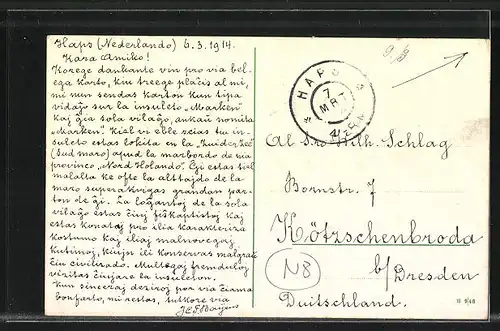 Haps (Nederlando) 6.3.1914.
Kara Amiko!
Korege dankante vin pro via bel-
ega karto, kiu treege plaĉis al mi,
mi nun sendas karton kun tipa
vidaĵo sur la insuleto "Marken"
kaj ĝia sola vilaĝo, ankaŭ nomita
"Marken". Kiel vi eble scias tiu in-
suleto estas lokita en la "Zuiderzeë"
(Sud,maro) apud la marbordo de nia
provinco "Nord Holando". Ĝi estas tiel
malalta ke ofte la altaĵo de la
maro superakvigas grandan par-
ton de ĝi. La loĝantoj de la sola
vilaĝo estas ĉiuj fiŝkaptistoj kaj
estas konataj pro ilia karakteriza
kostumo kaj iliaj malnovegaj
kutimoj, kiujn ili konservas malgraŭ
ĉiu civilizado. Multegaj fremduloj
vizitas ĉiujare la insuleton.
Kun sinceraj deziroj por via ĉiama
bonfarto, mi restas, tutkore via
9/3
HAPS
7
MRT
Al S-ro Wilh. Schlag
Bornstr. 7
Kötzschenbroda
N8
b/ Dresden
Duitschland.